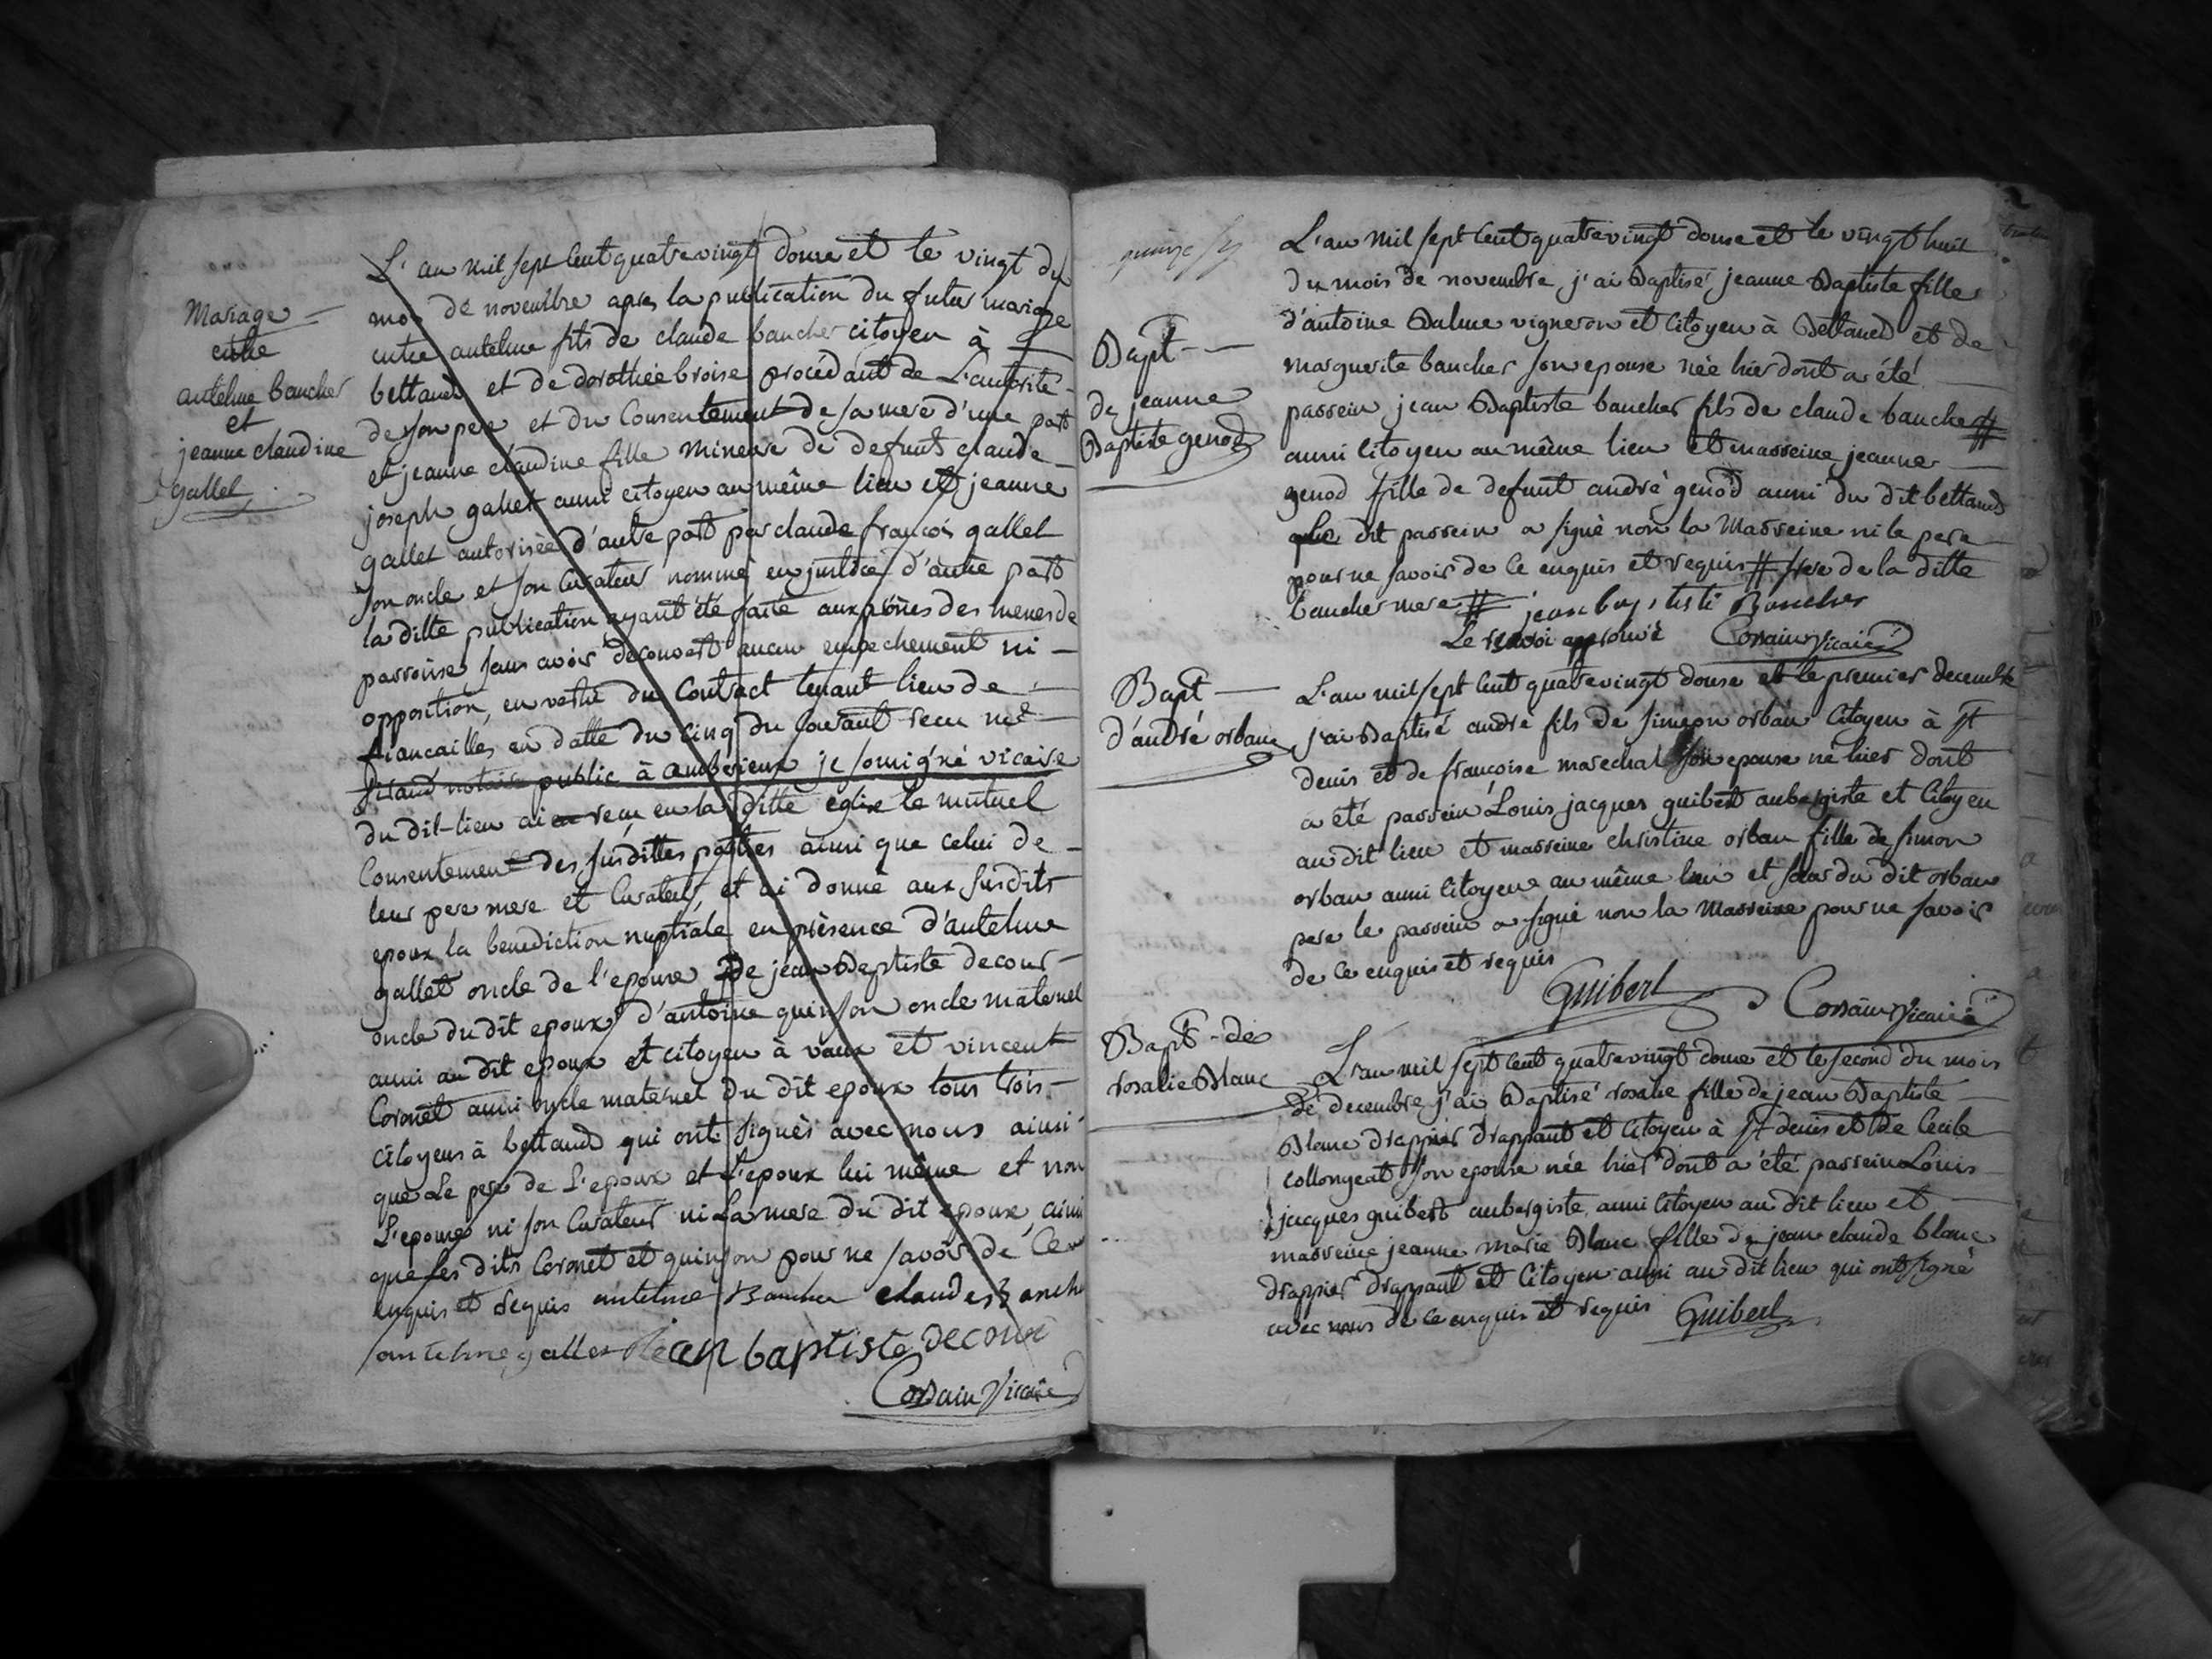 Mariage
entre
antelme baucher
et
jeanne claudine
gallet
L'an mil sept cent quatre vingt douse et le vingt du
mois de novembre apres la publication du futur mariage
entre antelme fils de claude baucher citoyen à
bettand et de dorothée broise procédant de L'autorité
de son pere et du Consentement de sa mere d'une part
et jeanne claudine fille mineure de defunt claude
joseph gallet aussi citoyen au même lieu et jeanne
gallet autorisée d'autre part par claude françois gallet
son oncle et son Curateur nommé en justice d'autre part
la ditte publication ayant été faite aux prônes des messes de
parroisse sans avoir découvert aucun empechement ni
opposition, en vertu du Contract tenant lieu de
fiancailles en datte du cinq du courant recu me
notaire public à amberieux je sousigné vicaire
du dit lieu ai recu en la ditte eglise le mutuel
Consentement des susdittes parties ainsi que celui de
leur pere mere et Curateur, et ai donné aux susdits
epoux la benediction nuptiale en présence d'antelme
gallet oncle de l'epouse De jean Baptiste decour
oncle du dit epoux d'antoine quinson oncle maternel
aussi au dit epoux et citoyen à vaux et vincent
Coronet aussi oncle maternel du dit epoux tous trois
citoyens à bettand qui ont signés avec nous ainsi
que Le pere de L'epoux et L'epoux lui même et non
L'epouse ni son Curateur ni La mere du dit epoux, ainsi
que les dits Coronet et quinson pour ne savoir de Ce
enquis et requis antelme Baucher claude Bauche
antelme gallet Jean baptiste decour
Cossain Vicaire
Bapt
de jeanne
Baptiste genod
L'an mil sept cent quatre vingt douse et le vingt huit
du mois de novembre j'ai Baptisé jeanne Baptiste fille
d'antoine Balme vigneron et Citoyen à Bettand et de
marguerite baucher son epouse née hier dont a été
parrein jean Baptiste baucher fils de claude baucher #
aussi citoyen au même lieu et marreine jeanne
genod fille de defunt andrè genod aussi du dit bettand
Le dit parrein a signè non la Marreine ni le pere
pour ne savoir de Ce enquis et requis # frere de la ditte
baucher mere # jean baptiste Baucher
Le renvoi approuvé Cossain Vicaire
Bapt
d'andré orban
L'an mil sept cent quatre vingt douse et le premier decembre
j'ai Baptisé andre fils de simeon orban Citoyen à St
denis et de françoise marechal son epouse né hier dont
a été parrein Louis jacques guibert aubergiste et Citoyen
au dit lieu et marreine christine orban fille de simon
orban aussi Citoyen au même lieu et soeur du dit orban
pere le parrein a signé non la Marreine pour ne savoir
de Ce enquis et requis
Guibert Cossain Vicaire
Bapt de
rosalie Blanc
L'an mil sept cent quatre vingt douse et le second du mois
de decembre j'ai Baptisé rosalie fille de jean Baptiste
Blanc drappier drappant et Citoyen à St denis et de Cecile
collongeat son epouse née hier dont a été parrein Louis
jacques guibert aubergiste aussi Citoyen au dit lieu et
marreine jeanne marie Blanc fille de jean claude blanc
drappier drappant et Citoyen aussi au dit lieu qui ont signé
avec nous de Ce enquis et requis Guibert